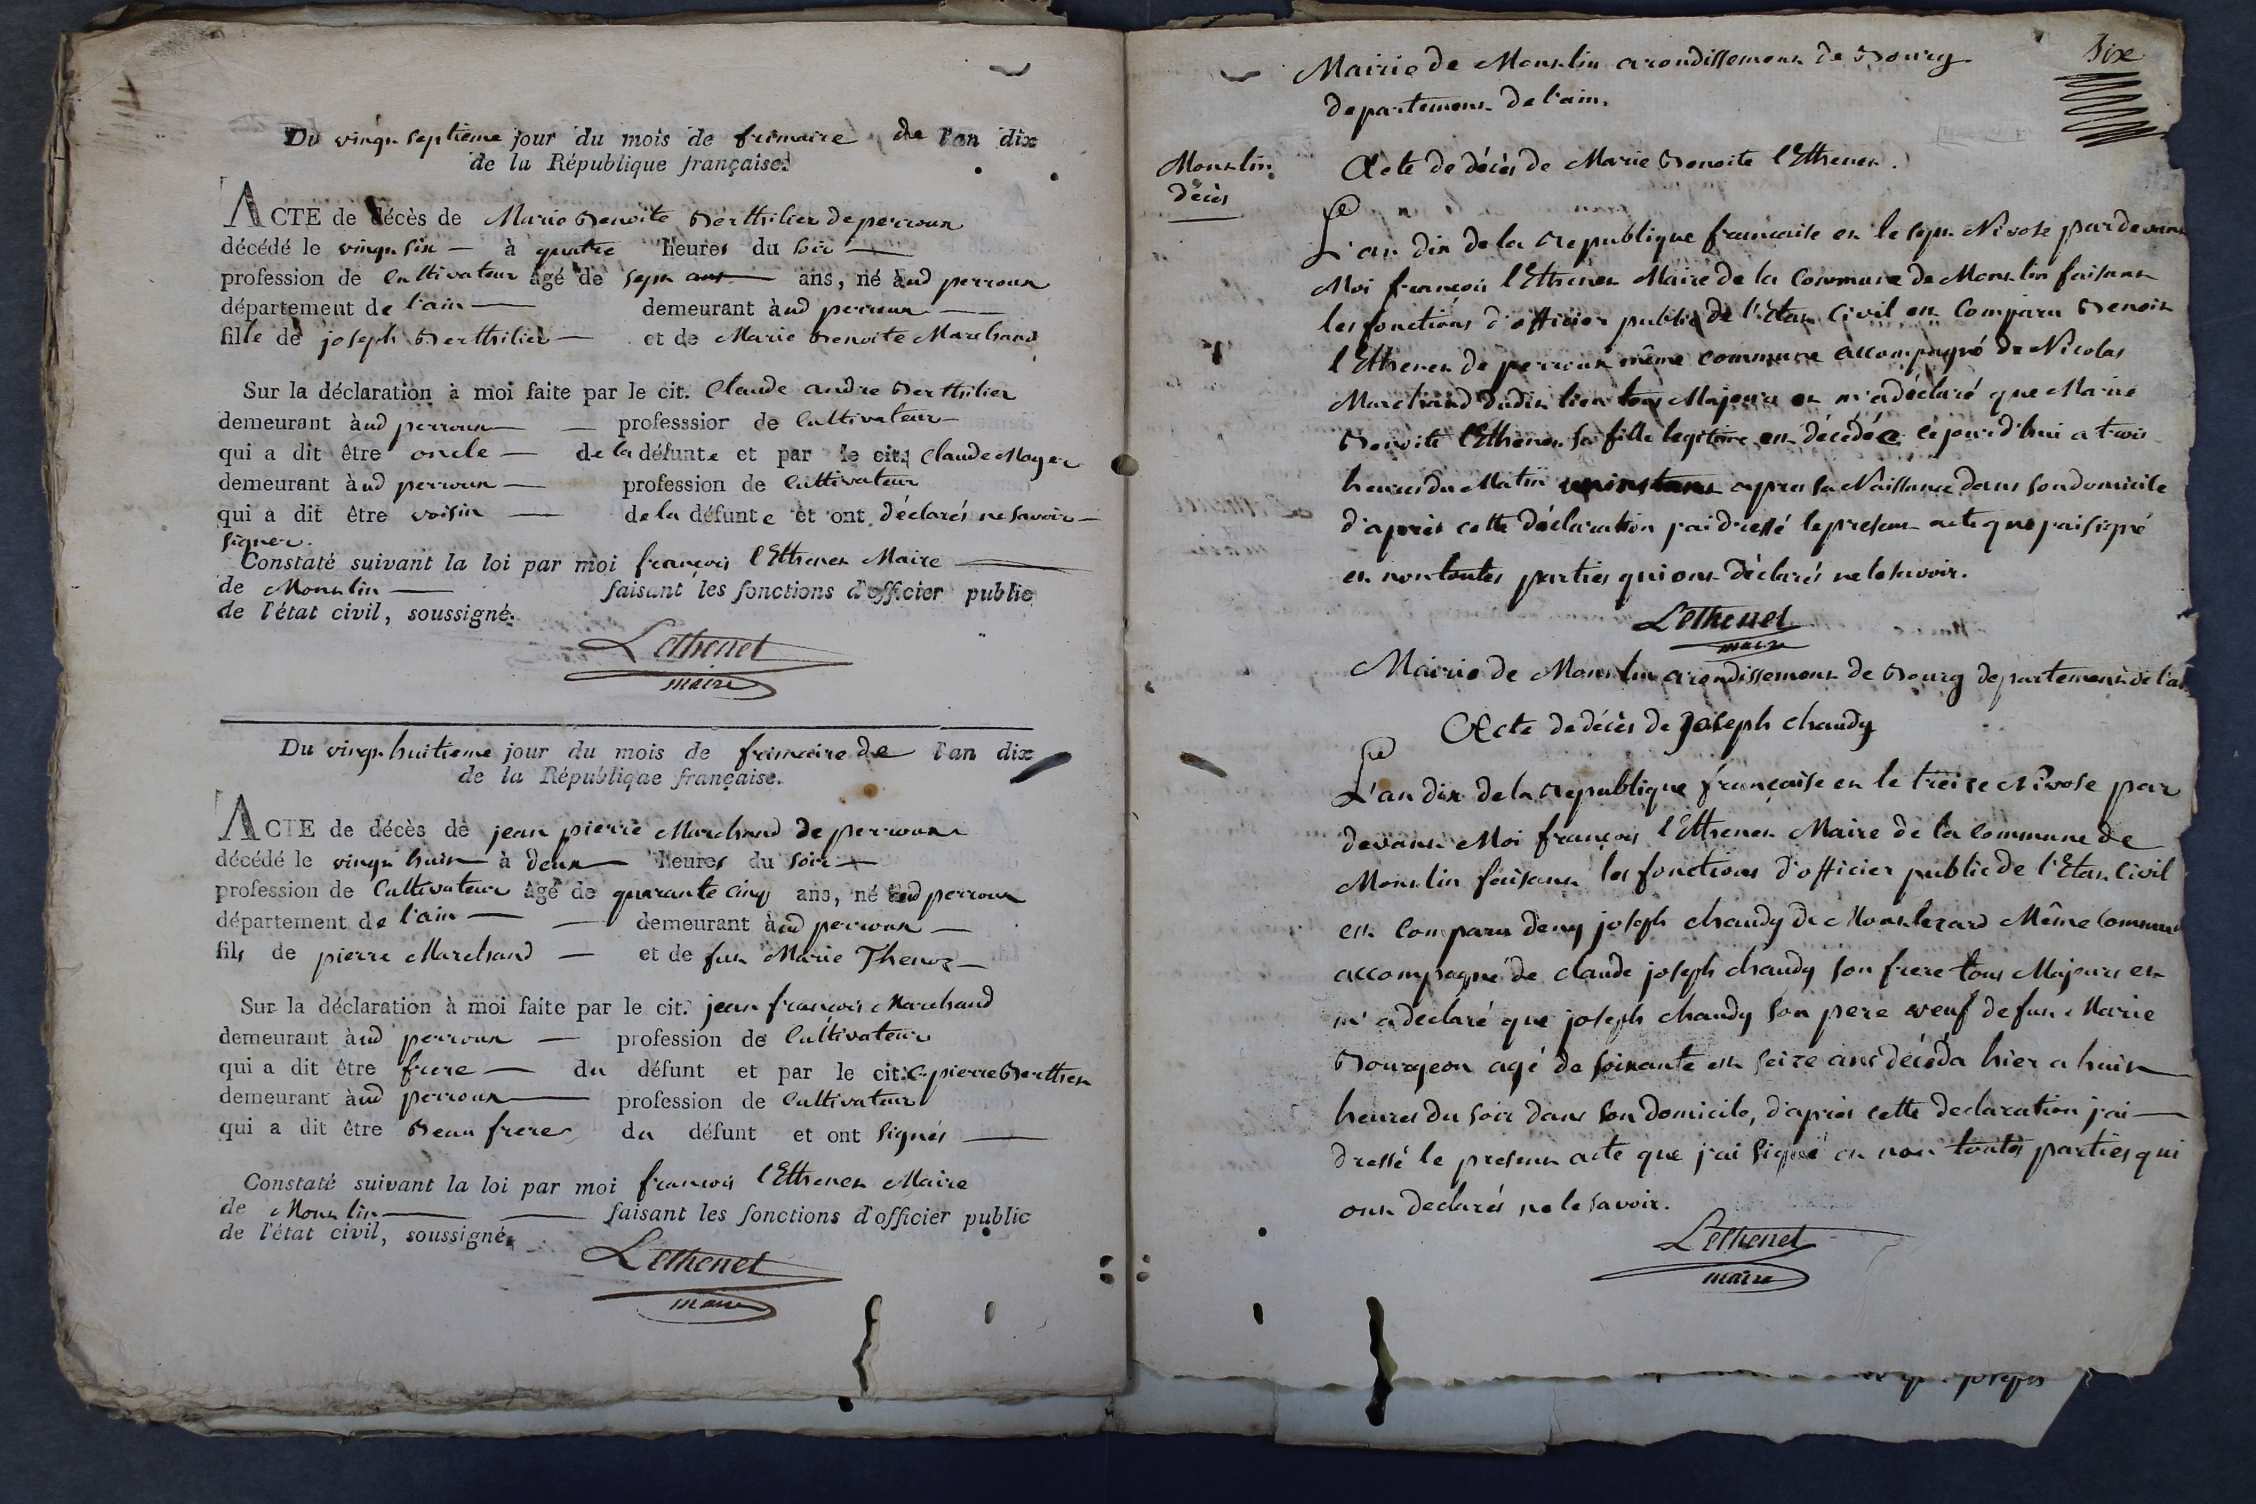 Du vingt septieme jour du mois de frimaire de l'an dix
de la République française.
ACTE de décès de Marie Benoite Berthilier de perroux
décédé le vingt six — à quatre heures du soir —
profession de Cultivateur âgé de sept ans ans, né aud perroux
département de l'ain — demeurant aud perroux —
fille de joseph Berthilier — et de Marie Benoite Marchand
Sur la déclaration à moi faite par le cit. Claude andre Berthilier
demeurant aud perroux — professsior de Cultivateur —
qui a dit être oncle — de la défunte et par le cit. Claude Moyer
demeurant aud perroux — profession de Cultivateur
qui a dit être voisin — de la défunte et ont déclarés ne savoir —
signer.
Constaté suivant la loi par moi françois l'Ethenet Maire —
de Montlin — faisant les fonctions d'officier public
de l'état civil, soussigné.
Lethenet
maire
Du vingt huitieme jour du mois de frimaire de l'an dix
de la République française.
ACTE de décès de jean pierre Marchand de perroux
décédé le vingt huit — à deux heures du soir —
profession de Cultivateur âgé de quarante cinq ans, né aud perroux
département de l'ain — demeurant aud perroux —
fils de pierre Marchand — et de fut Marie Thenoz —
Sur la déclaration à moi faite par le cit. jean françois Marchand
demeurant aud perroux — profession de Cultivateur
qui a dit être frere — du défunt et par le cit. C. pierre Berthet
demeurant aud perroux — profession de Cultivateur
qui a dit être Beau frere du défunt et ont signés —
Constaté suivant la loi par moi françois l'Ethenet Maire
de Montlin — faisant les fonctions d'officier public
de l'état civil, soussigné.
Lethenet
maire
Six
Mairie de Montlin arondissement de Bourg
departement de l'ain.
Montlin
décès
Acte de décès de Marie Benoite l'Ethenet.
L'an dix de la Republique francaise et le sept Nivose pardevant
Moi françois l'Ethenet Maire de la Commune de Montlin faisant
les fonctions d'officier public de l'Etat Civil est Comparu Benoit
l'Ethenet de perroux même commune accompagné de Nicolas
Marchand dudit lieu tous Majeurs et m'a déclaré que Marie
Benoite l'Ethenet sa fille legitime est décédée cejourd'hui a trois
heures du Matin un instant apres sa Naissance dans son domicile
d'après cette déclaration j'ai dressé le present acte que j'ai signé
et non toutes parties qui ont déclarés ne le savoir.
Lethenet
maire
Mairie de Montlin arondissement de Bourg departement de l'ai
Acte de décès de Joseph chaudy
L'an dix de la Republique française et le treize Nivose par
devant Moi françois l'Ethenet Maire de la Commune de
Montlin faisant les fonctions d'officier public de l'Etat Civil
est Comparu deny joseph chaudy de Montlezard Même Commune
accompagné de claude joseph chaudy son frere tous Majeurs et
m'a declaré que joseph chaudy son pere veuf de fut Marie
Bourgeon agé de soixante et seize ans déceda hier a huit —
heures du soir dans son domicile, d'apres cette declaration j'ai —
dressé le present acte que j'ai signé et non toutes parties qui
ont declarés ne le savoir.
Lethenet
maire